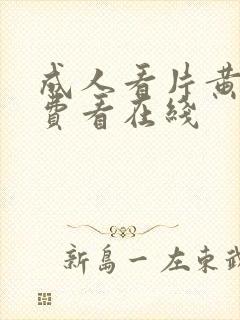 成人看片黄
费看在线
新島一左东武